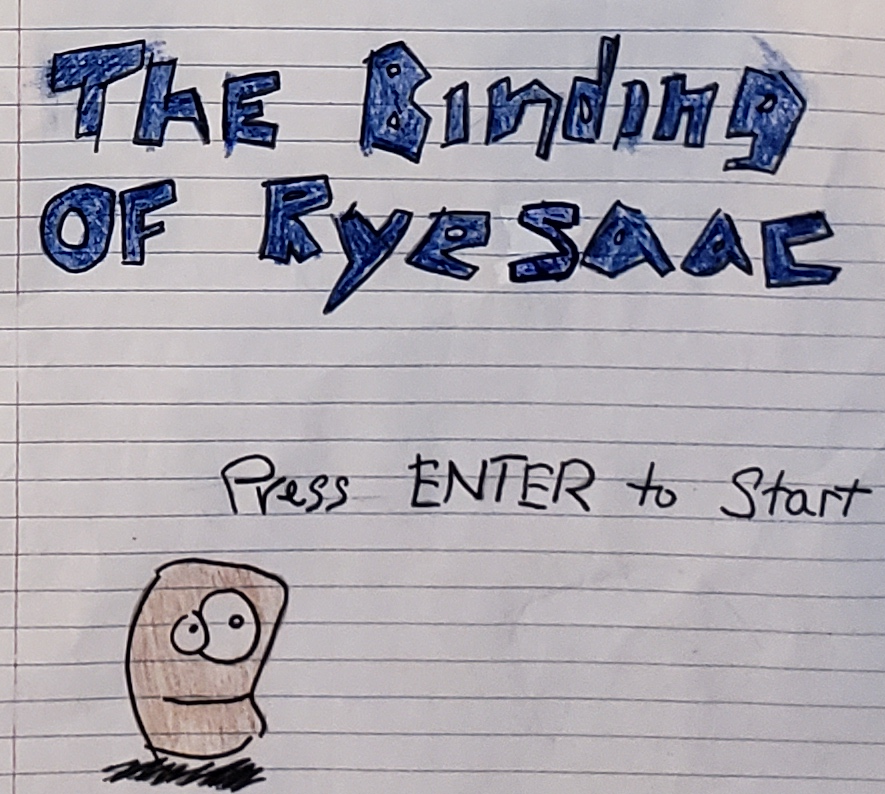 The Binding
OF Ryesaac
Press ENTER to Start